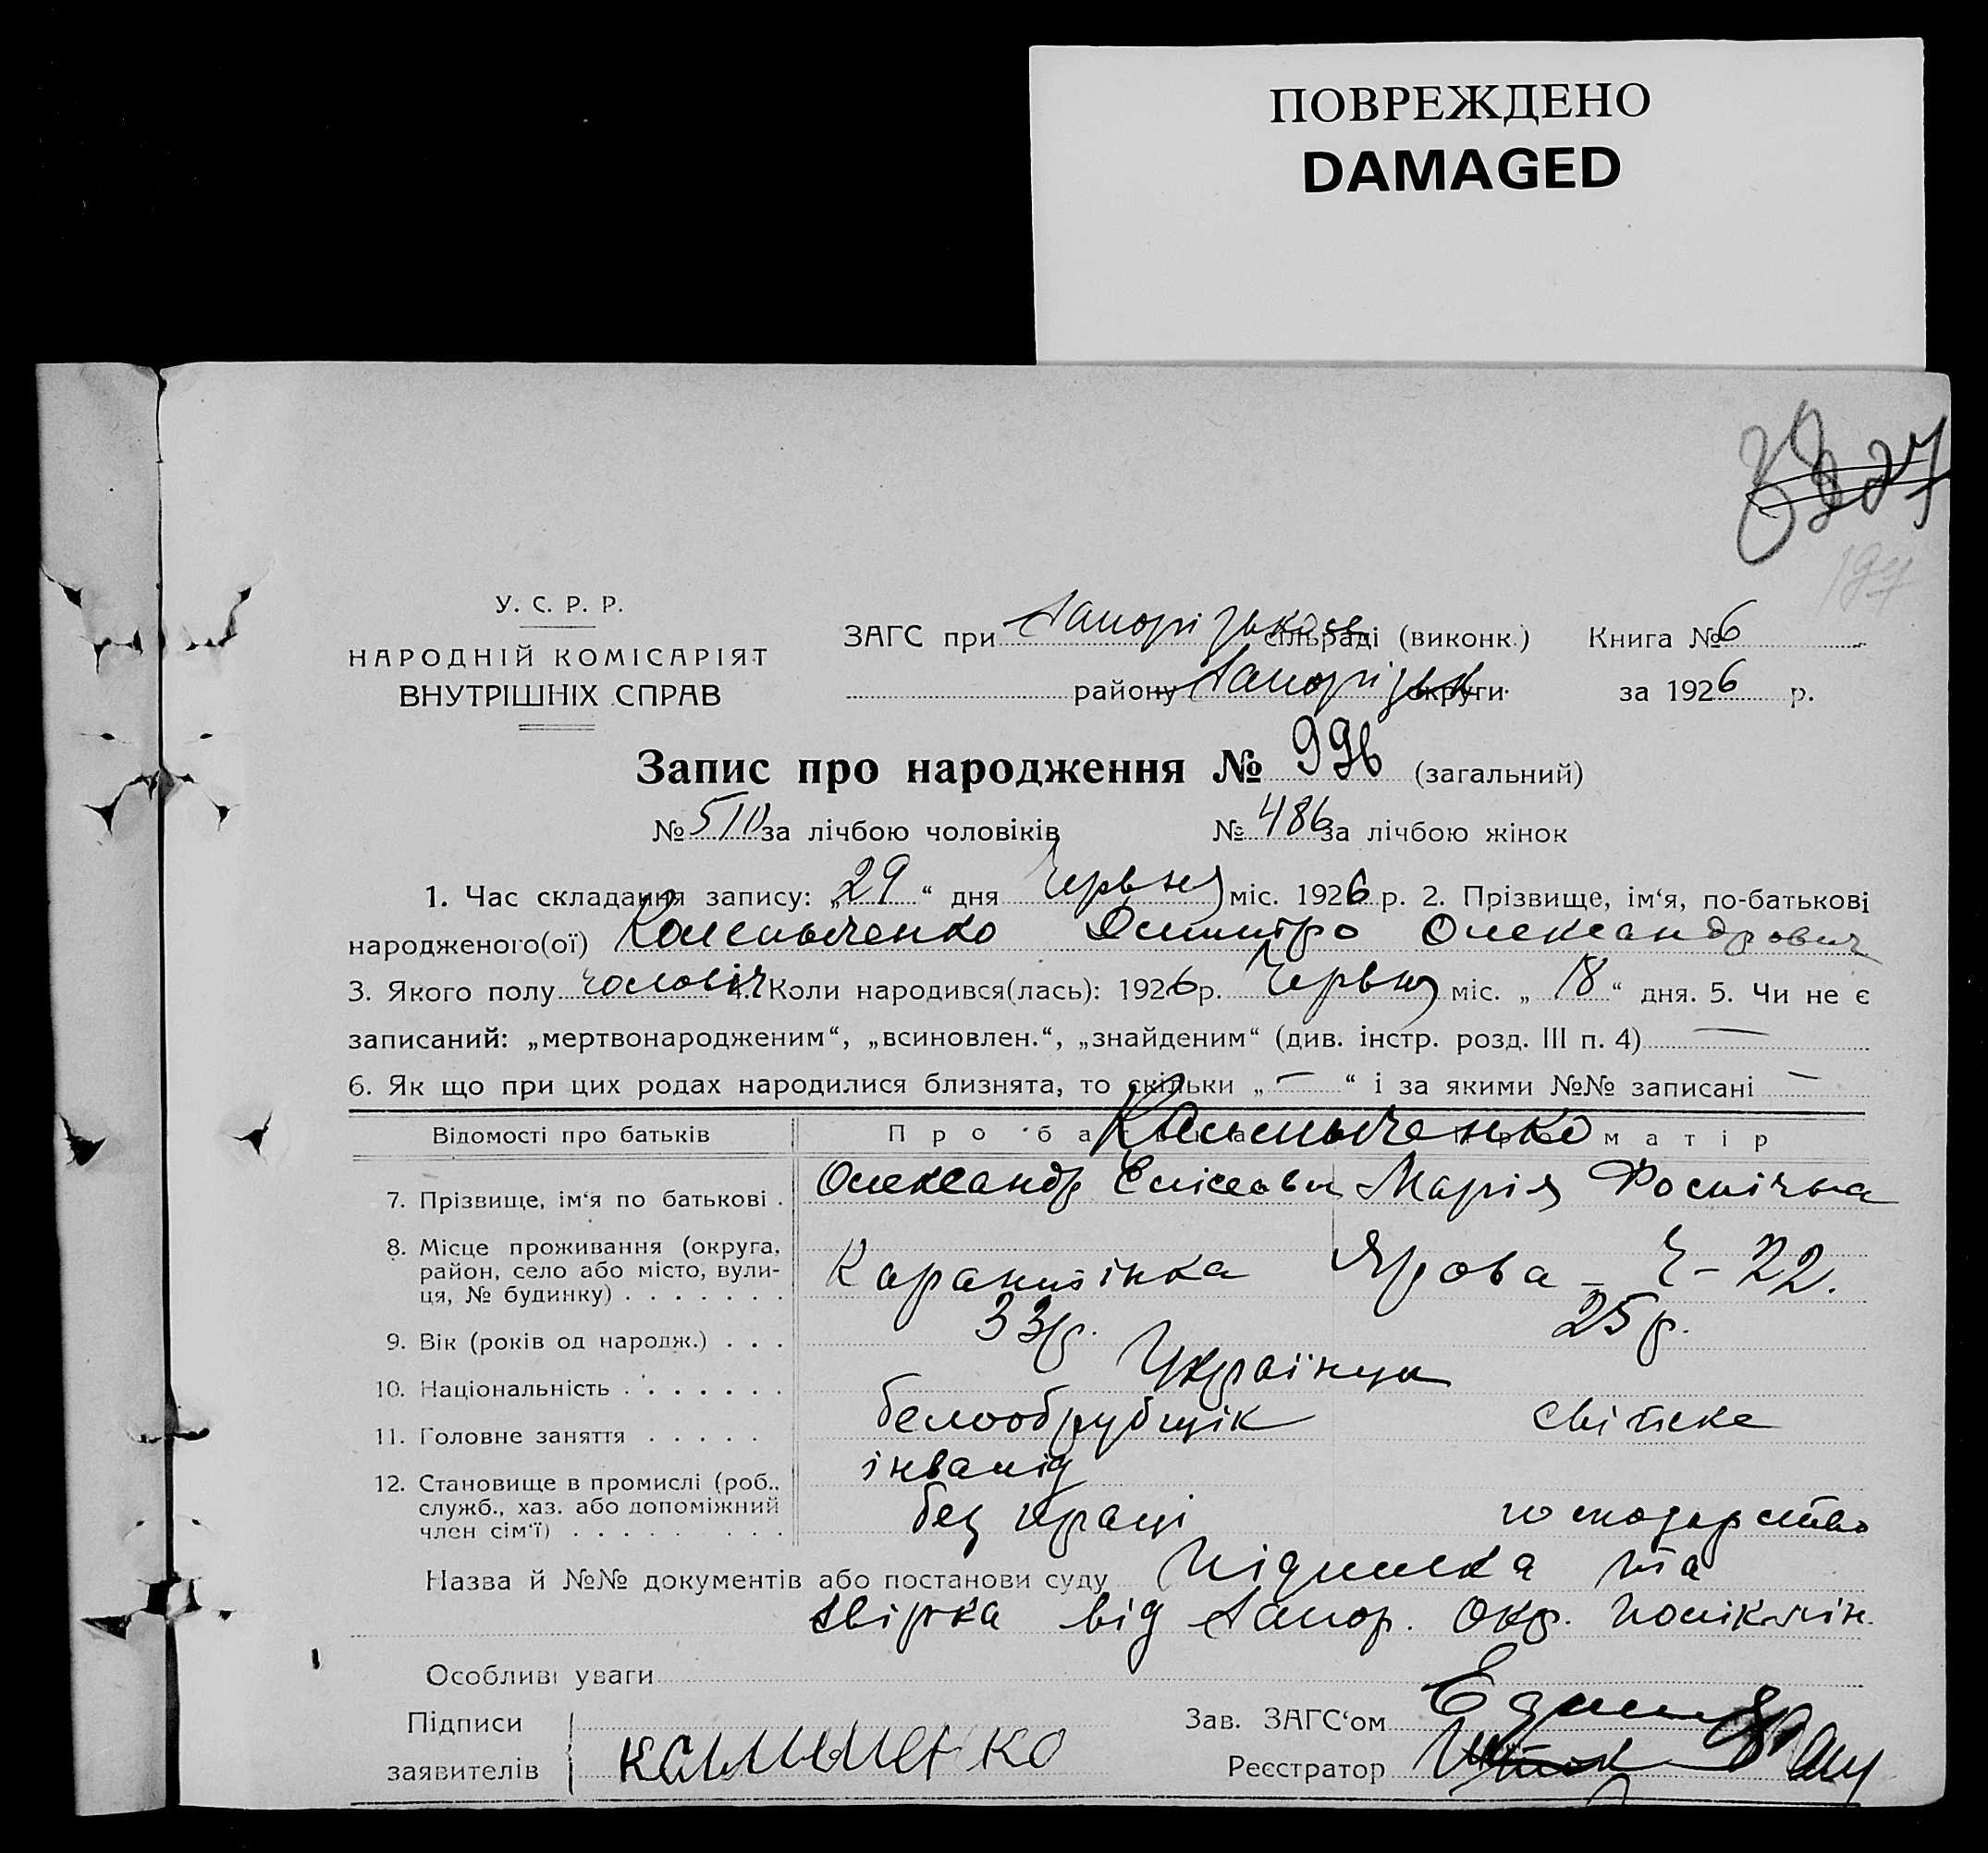 ПОВРЕЖДЕНО
DAMAGED
У. С. Р. Р.
НАРОДНІЙ КОМІСАРІЯТ
ВНУТРІШНІХ СПРАВ
ЗАГС при Запорізькою сільраді (виконк.) Книга № 6
району Запорізьк округи за 1926 р.
Запис про народження № 996 (загальний)
№ 510 за лічбою чоловіків № 486 за лічбою жінок
1. Час складання запису: „29“ дня Червня міс. 1926 р. 2. Прізвище, ім‘я, по-батькові
народженого(ої) Дмитро Олександрович
3. Якого полу чоловіч 4. Коли народився(лась): 1926 р. Червня міс. „18“ дня. 5. Чи не є
записаний: „мертвонародженим“, „всиновлен.“, „знайденим“ (див. інстр. розд. III п. 4) —
6. Як що при цих родах народилися близнята, то скільки „—“ і за якими №№ записані —
Відомості про батьків Про батька Про матір
7. Прізвище, ім‘я по батькові . Олександр Марія
8. Місце проживання (округа,
район, село або місто, вули-
ця, № будинку) . . . . . . . Карантінка Ярова – 22.
9. Вік (років од народж.) . . . 33 р. 25 р.
10. Національність . . . . . . . Українци
11. Головне заняття . . . . .
12. Становище в промислі (роб.,
служб., хаз. або допоміжний
член сім‘ї) . . . . . . . . . інвалід
без праці господарство
Назва й №№ документів або постанови суду Підписка та
від Запор. Окр. поліклін.
Особливі уваги
Підписи
заявителів
Зав. ЗАГС‘ом
Реєстратор